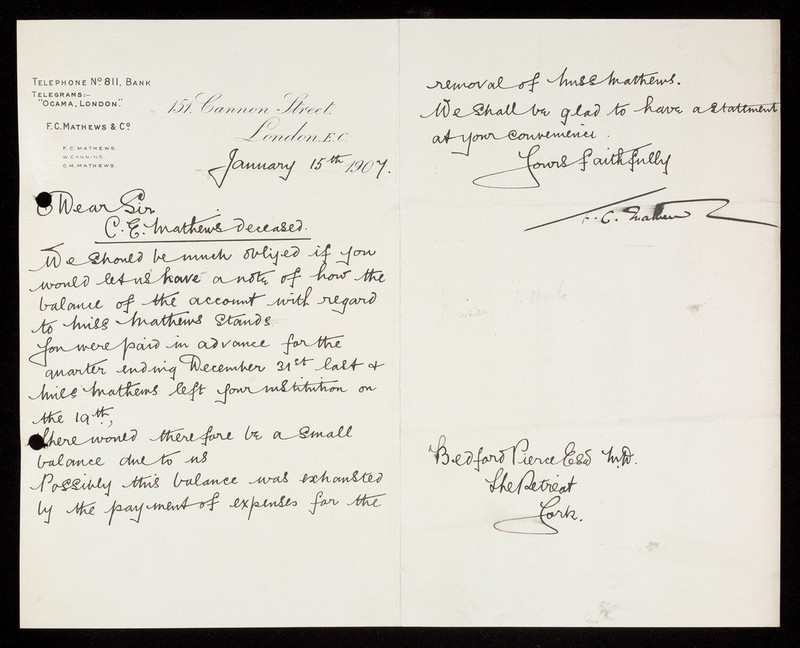 TELEPHONE Nº 811, BANK
TELEGRAMS:-
"OCAMA, LONDON."
F.C. MATHEWS & Cº
F. C. MATHEWS.
W. CANNING.
C. M. MATHEWS.
151, Cannon Street,
London, E.C.
January 15th 1907.
Dear Sir
C. E. Mathews deceased.
We should be much obliged if you
would let us have a note of how the
balance of the account with regard
to Miss Mathews stands
You were paid in advance for the
quarter ending December 31st last &
Miss Mathews left your institution on
the 19th,
There would therefore be a small
balance due to us
Possibly this balance was exhausted
by the payment of expenses for the
removal of Miss Mathews.
We shall be glad to have a statement
at your convenience.
Yours faithfully
F. C. Mathews
Bedford Pierce Esq M.D.
The Retreat
York.